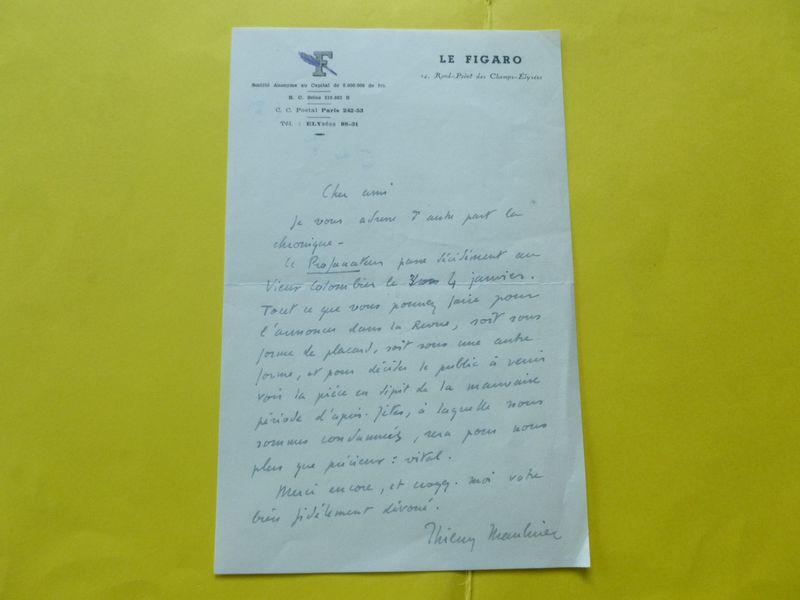 F
Société Anonyme au Capital de 6.000.000 de frs
R. C. Seine 210.002 B
C. C. Postal Paris 242-53
Tél. : ELYsées 98-31
LE FIGARO
14, Rond-Point des Champs-Élysées
Cher ami
Je vous adresse d'autre part la
chronique -
Le Profanateur passe décidément au
Vieux Colombier le 4 janvier.
Tout ce que vous pourrez faire pour
l'annoncer dans la Revue, soit sous
forme de placard, soit sous une autre
forme, et pour décider le public à venir
voir la pièce en dépit de la mauvaise
période d'après-fêtes, à laquelle nous
sommes condamnés, sera pour nous
plus que précieux : vital.
Merci encore, et croyez-moi votre
bien fidèlement dévoué.
Thierry Maulnier